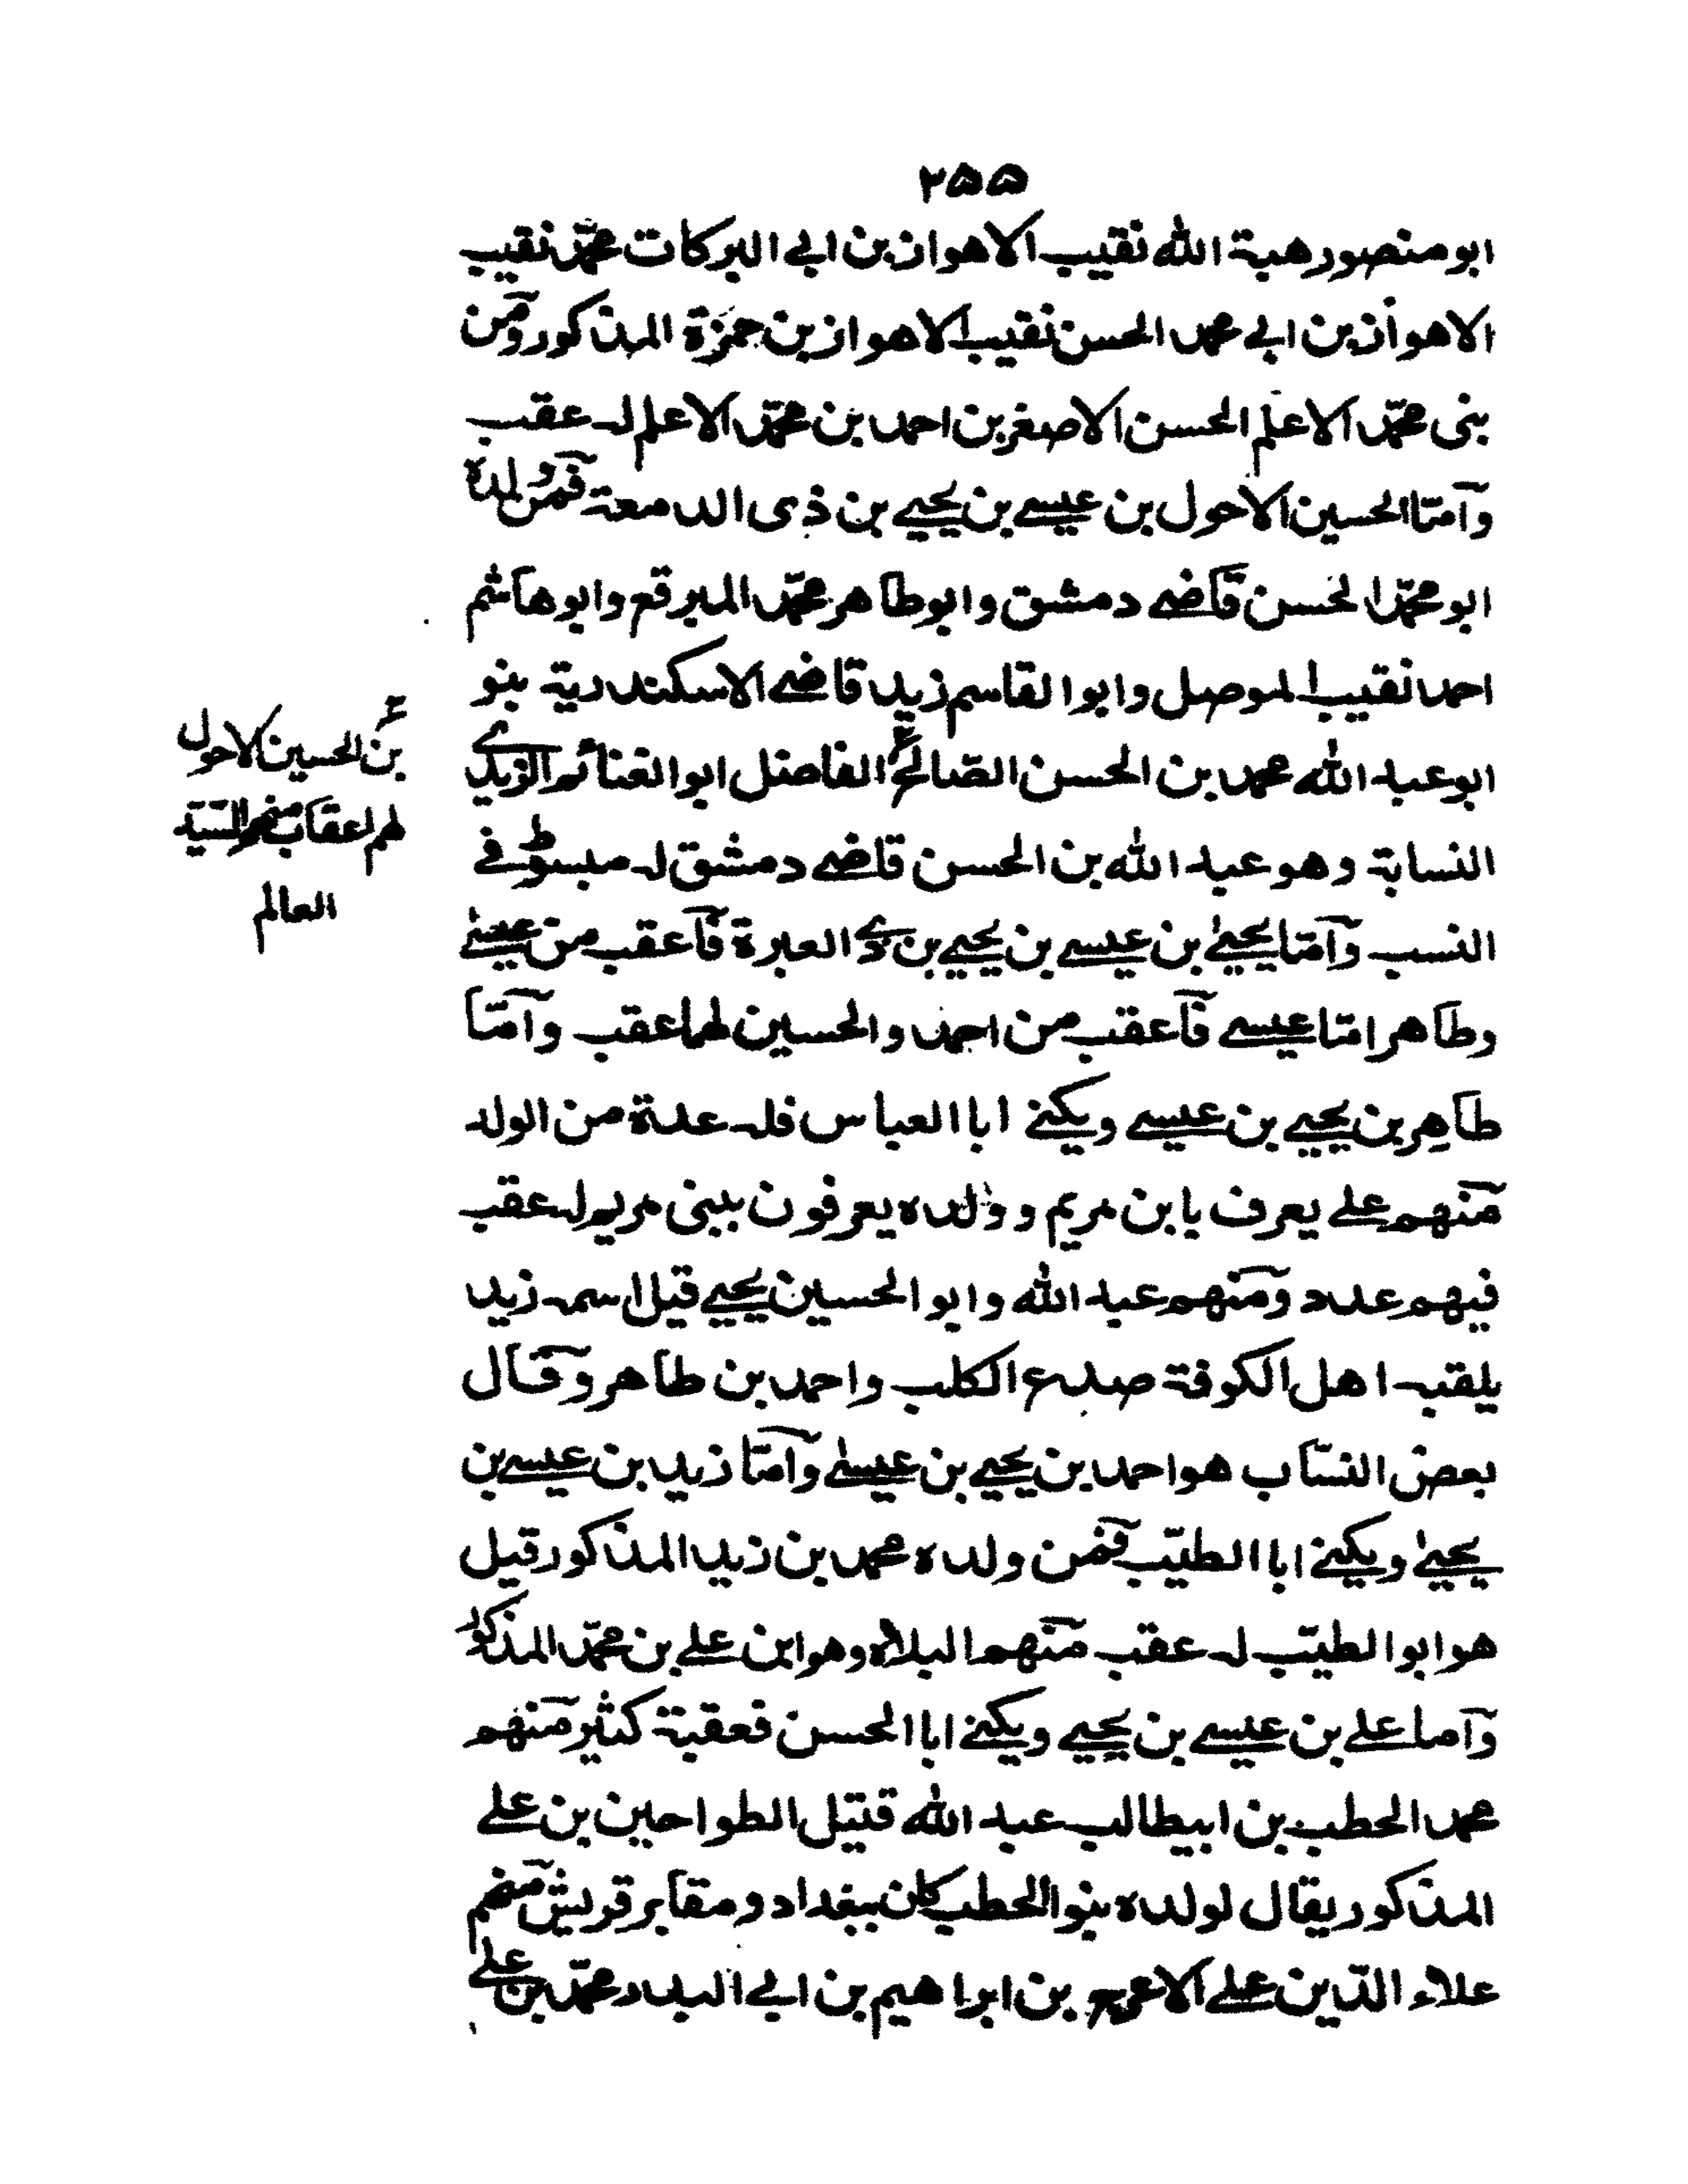 ٢٥٥
ابو منصور هبة الله نقيب الاهواز بن ابي البركات محمّد نقيب
الاهواز بن ابي محمد الحسن نقيب الاهواز بن حمزة المذكور ومن
بنى محمّد الاعلم الحسن الاصغر بن احمد بن محمّد الاعلم له عقب
وآمّا الحسين الاحول بن عيسے بن يحيے بن ذى الدمعة فمن ولده
ابو محمّد الحسن قاضے دمشق وابو طاهر محمّد المبرقع وابو هاشم
احمد نقيب الموصل وابو القاسم زيد قاضے الاسكندرية بنو
ابو عبد الله محمد بن الحسن الصّالح الفاضل ابو الغنائم الزيدے
النسابة وهو عبد الله بن الحسن قاضے دمشق له مبسوط فے
النسب وآمّا يحيىٰ بن عيسے بن يحيے بن ذے العبرة فاعقب من عيسىٰ
وطاهر امّا عيسے فاعقب من احمد والحسين لهما عقب وآمّا
طاهر بن يحيے بن عيسے ويكنے ابا العباس فله عدة من الولد
منهم علے يعرف بابن مريم وولده يعرفون ببنى مريم له عقب
فيهم عدد ومنهم عبد الله وابو الحسين يحيے قيل اسمه زيد
يلقبه اهل الكوفة صدع الكلب واحمد بن طاهر وقال
بعض النسّاب هو احمد بن يحيے بن عيسىٰ وآمّا زيد بن عيسے بن
يحيىٰ ويكنے ابا الطيّب فمن ولده محمد بن زيد المذكور قيل
هو ابو الطيّب له عقب منهم البلاه وهو ابن علے بن محمّد المذكور
وآما علے بن عيسے بن يحيے ويكنے ابا الحسن فعقبة كثير منهم
محمد الحطب بن ابيطالب عبد الله قتيل الطواحين بن علے
المذكور يقال لولده بنو الحطب كان ببغداد ومقابر قريش منهم
علاء الدّين علے الاعرج بن ابراهيم بن ابي البدر محمّد بن علے
بن الحسين الاحول
لهم اعقاب منهم السّيد
العالم